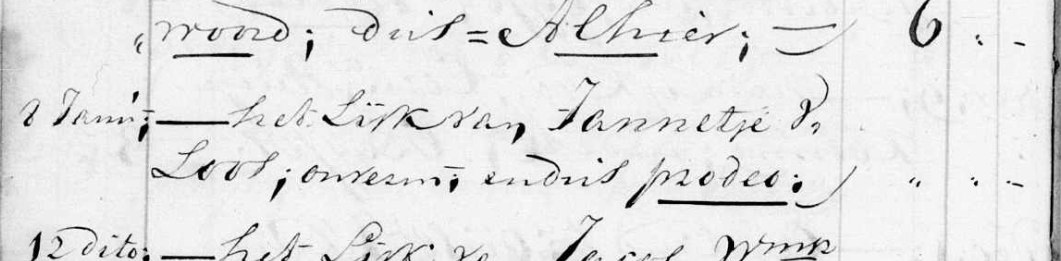 „woord; dus = Alhier; — ) 6 „ -
8 Janu: — het Lijk van Jannetje P.
Loos; onverm: en dus prodeo: ) „ „ -
12 dito: — het Lijk van Jacob Wmz